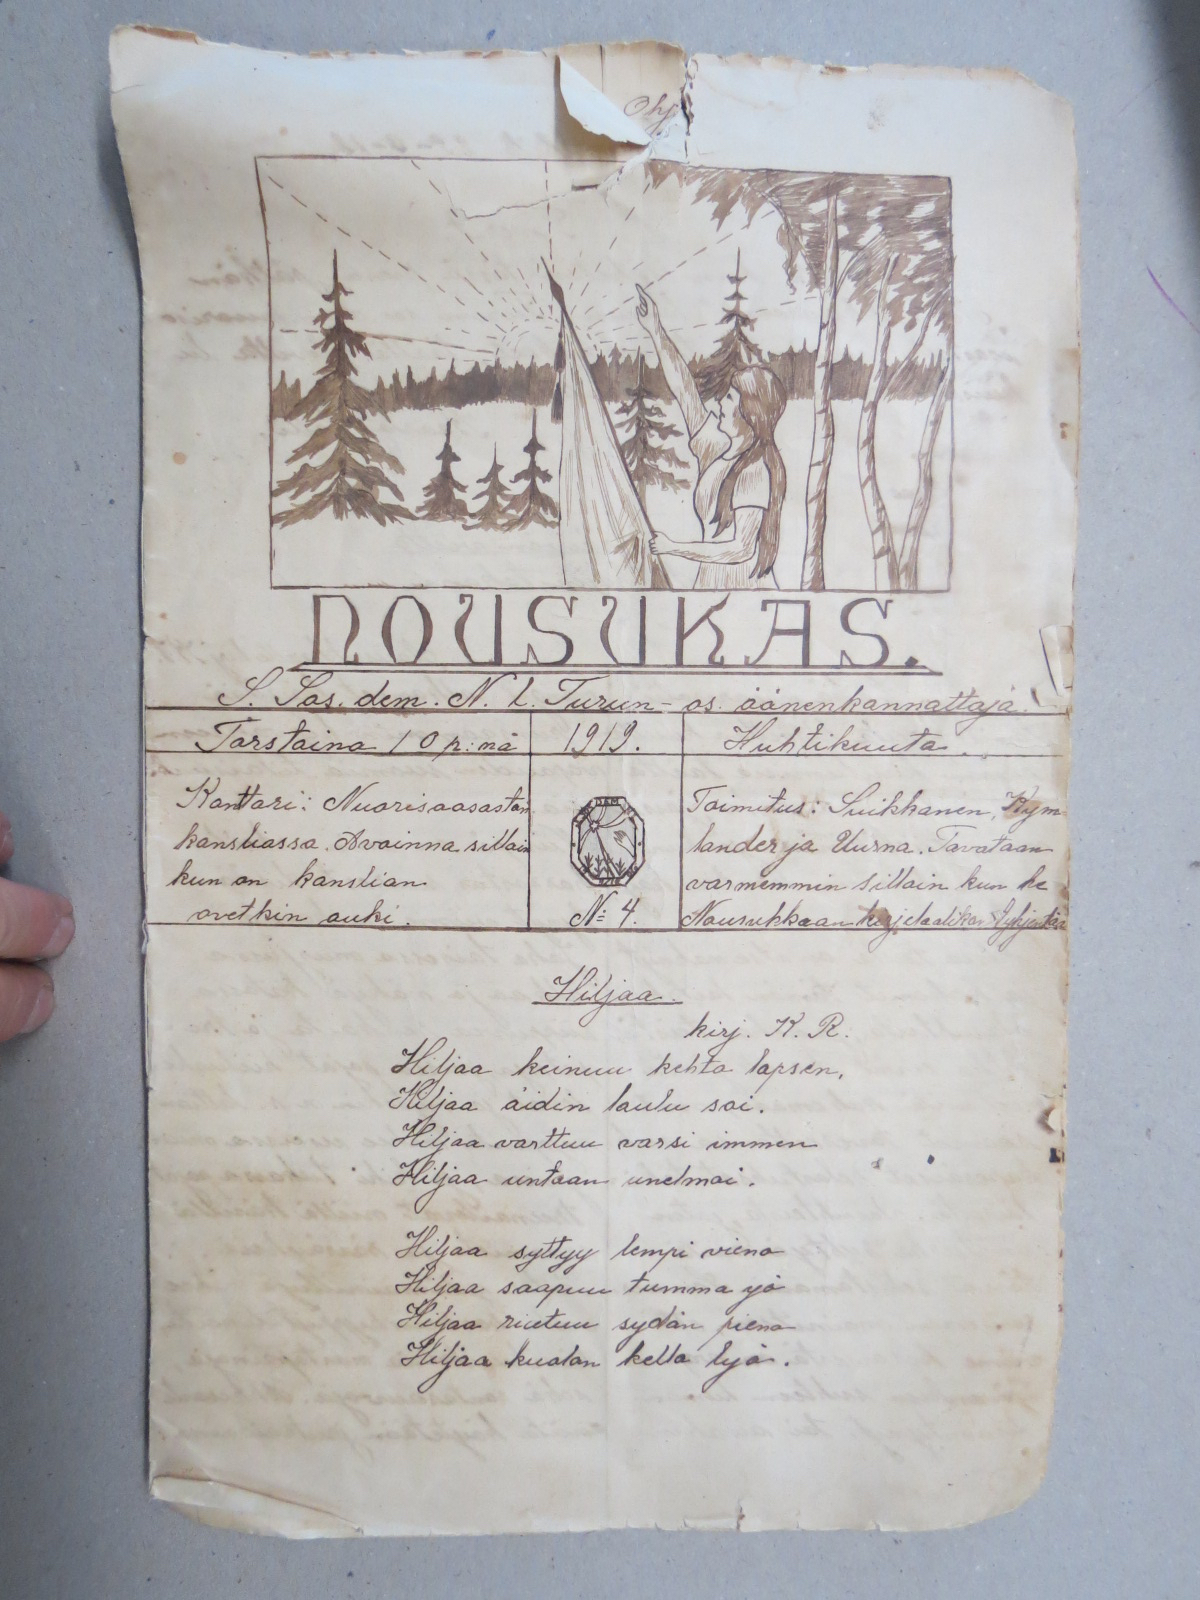 Ohj
NOUSUKAS.
S. Sos. dem. N. l. Turun- os. äänenkannattaja.
Torstaina 10 p:nä
1919.
Huhtikuuta.
Konttori: Nuorisoosaston
kansliassa. Avoinna silloin
kun on kanslian
ovetkin auki.
№ 4.
Toimitus: Suikkanen, Kym-
lander ja Uurna. Tavataan
varmemmin silloin kun he
Nousukkaan
Hiljaa.
kirj. K. R.
Hiljaa keinuu kehto lapsen,
Hiljaa äidin laulu soi.
Hiljaa varttuu varsi immen
Hiljaa untaan unelmoi.
Hiljaa syttyy lempi vieno
Hiljaa saapuu tumma yö
Hiljaa riutuu sydän pieno
Hiljaa kuolon kello lyö.